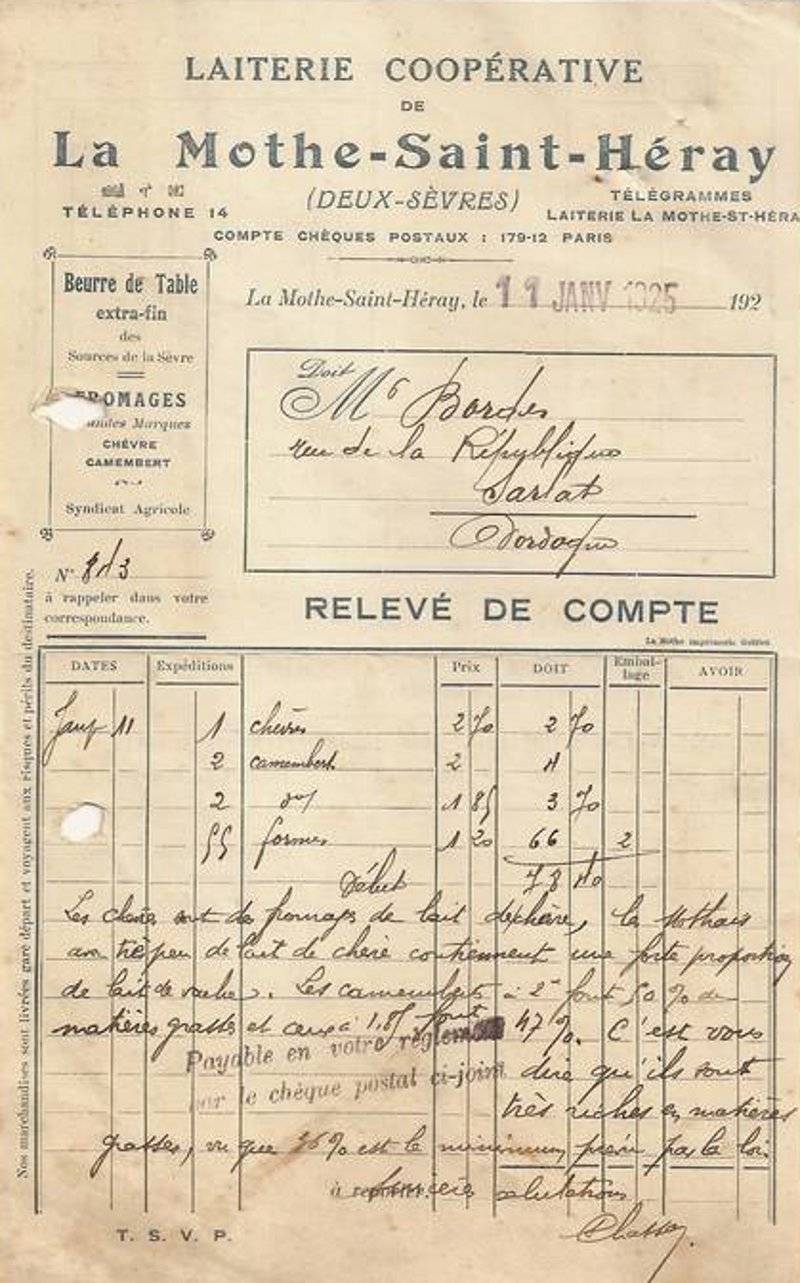 LAITERIE COOPÉRATIVE
DE
La Mothe-Saint-Héray
(DEUX-SÈVRES)
TÉLÉPHONE 14
TÉLÉGRAMMES
LAITERIE LA MOTHE-ST-HÉRA
COMPTE CHÈQUES POSTAUX : 179-12 PARIS
Beurre de Table
extra-fin
des
Sources de la Sèvre
FROMAGES
Marques
CHÈVRE
CAMEMBERT
Syndicat Agricole
La Mothe-Saint-Héray, le 11 JANV 1925 192
Doit
Mr Bordes
rue de la République
Sarlat
Dordogne
N°
à rappeler dans votre
correspondance.
RELEVÉ DE COMPTE
La Mothe imprimerie
Nos marchandises sont livrées gare départ et voyagent aux risques et périls du destinataire.
DATES Expéditions Prix DOIT Embal-lage AVOIR
Janv 11 1 chèvres 2 70 2 70
2 camembert 2 4
2 do 1 85 3 70
55 formes 1 20 66 2
Début 78 40
Les chèvres sont des fromages de lait de chèvre, les Mothais
avec très peu de lait de chèvre contiennent une forte proportion
de lait de vache. Les camemberts à 2 font 50 % de
matières grasses et ceux à 1,85 font 47 %. C'est vous
Payable en votre règlement
par le chèque postal ci-joint
dire qu'ils sont
très riches en matières
grasses, vu que 36 % est le minimum prévu par la loi.
à reporter
Sincères salutations
T. S. V. P.